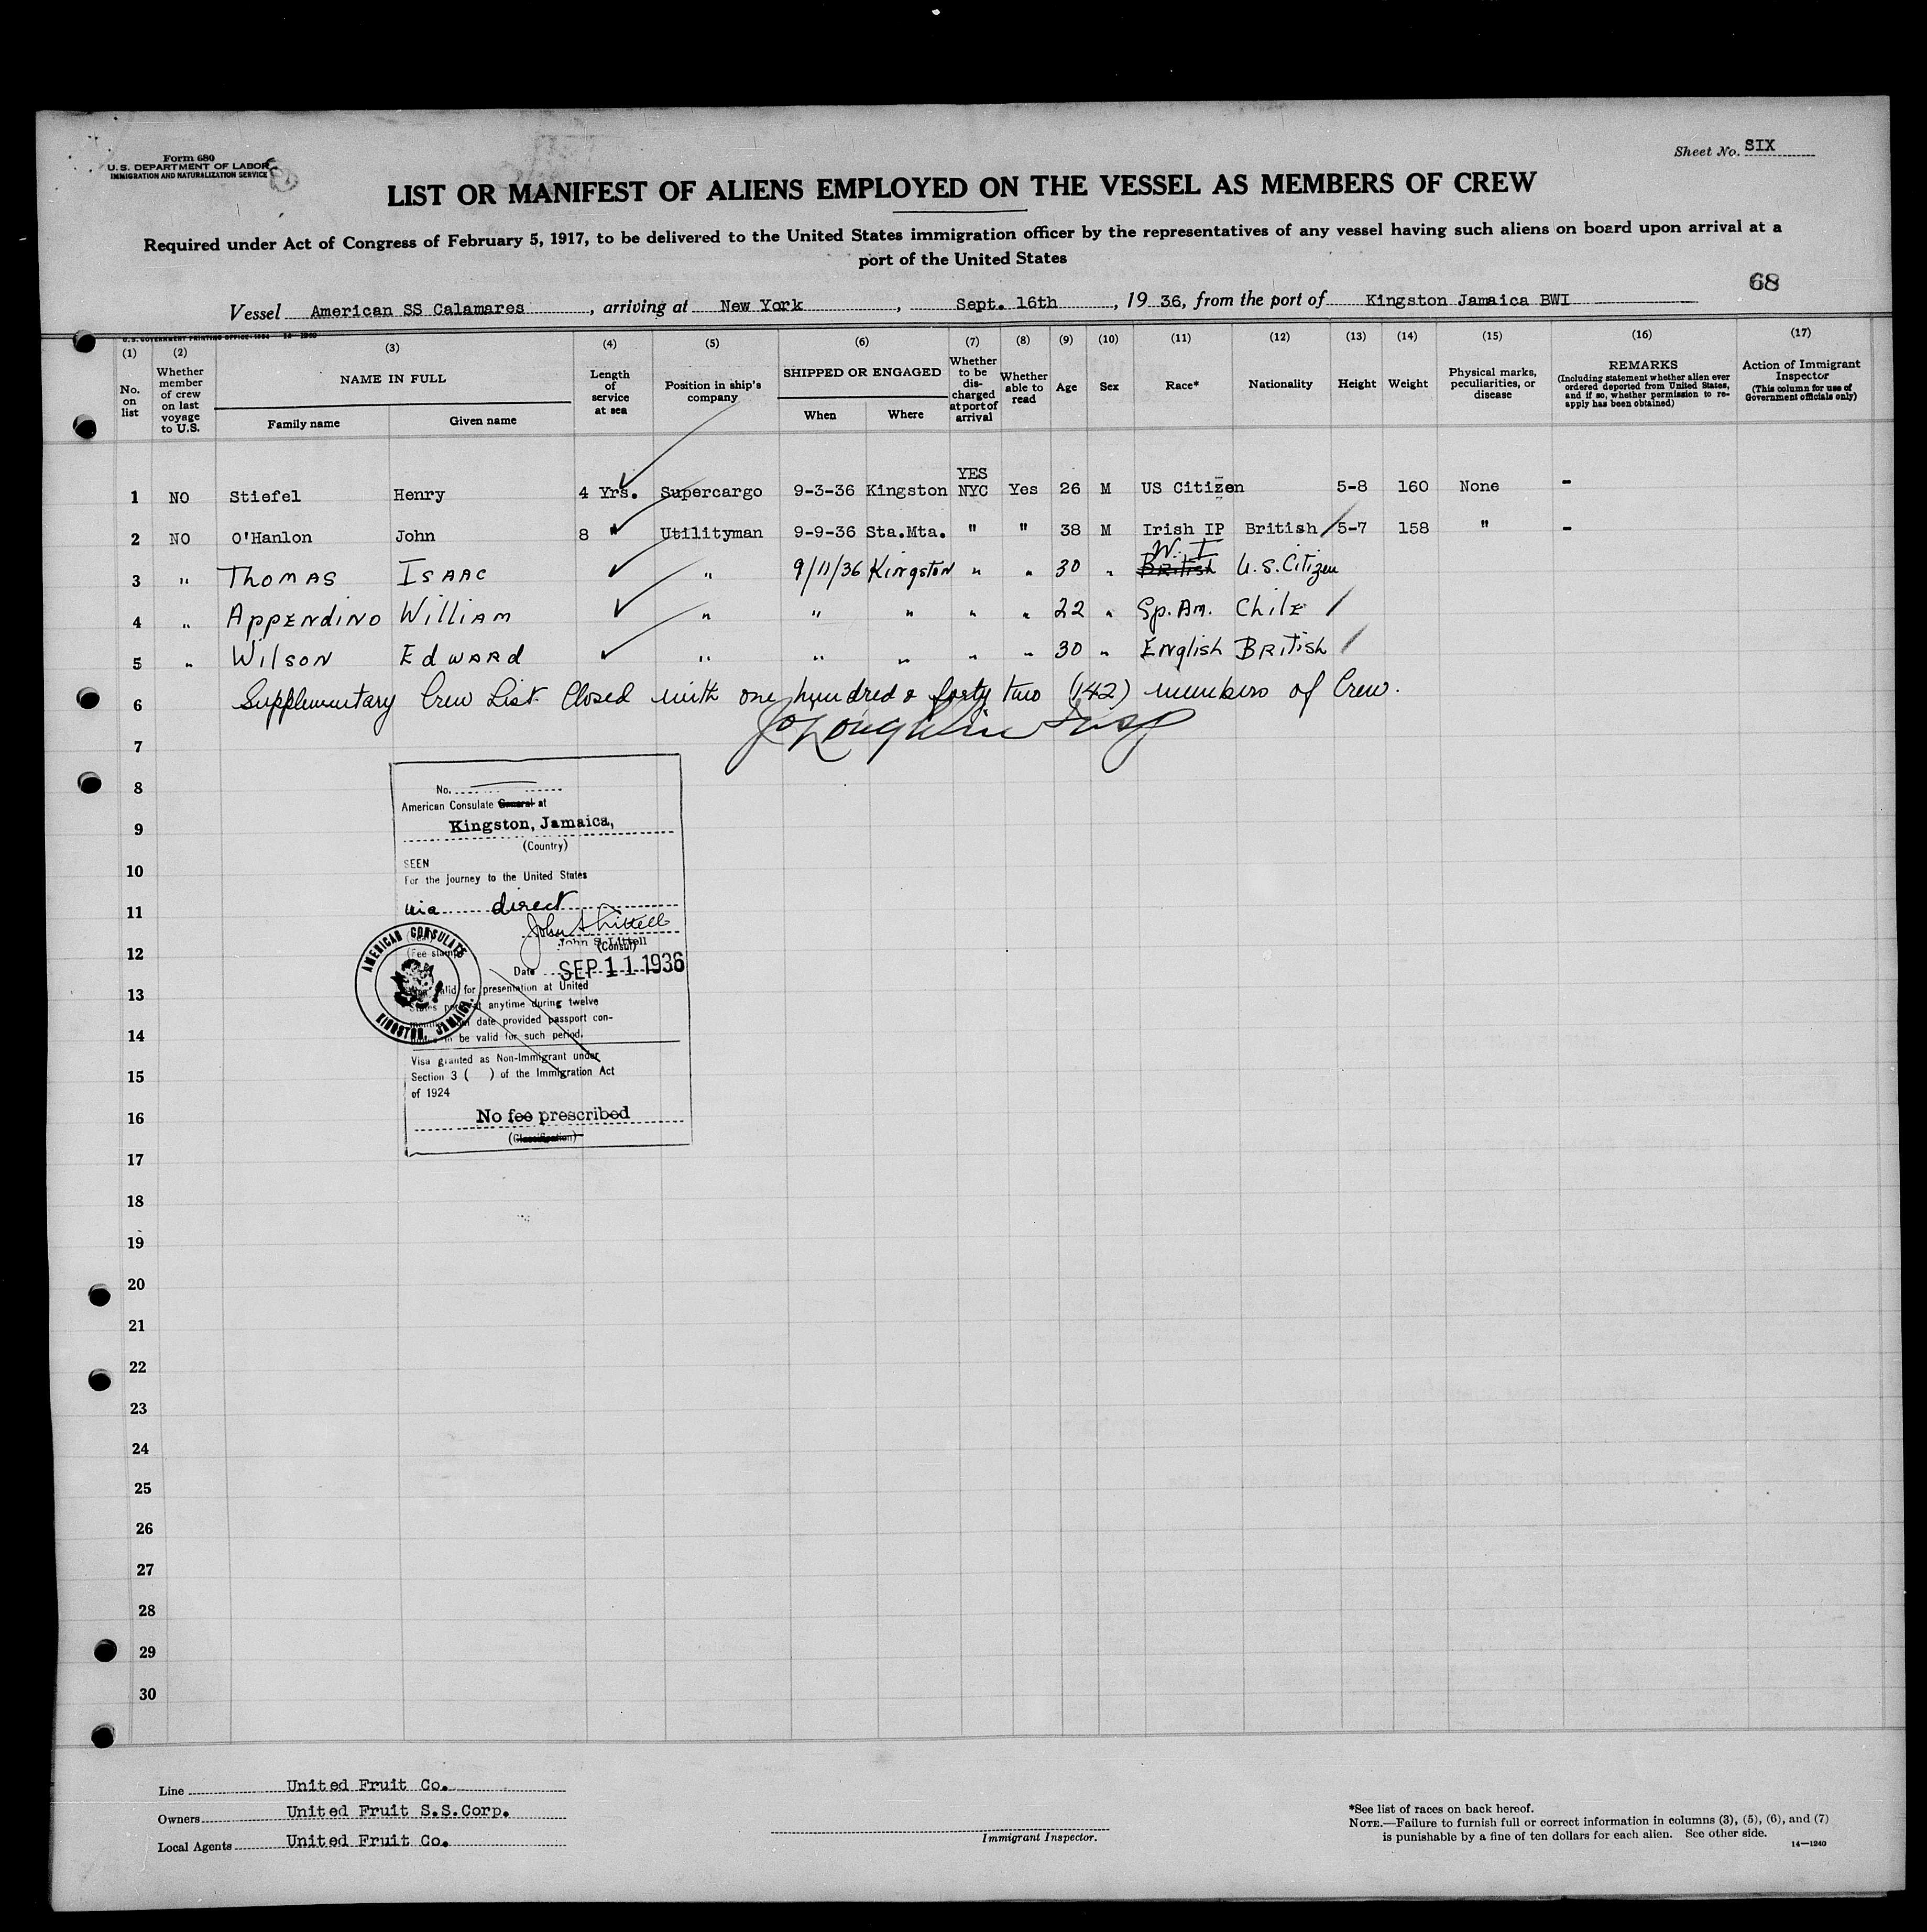 Form 680
U. S. DEPARTMENT OF LABOR
IMMIGRATION AND NATURALIZATION SERVICE
Sheet No. SIX
LIST OR MANIFEST OF ALIENS EMPLOYED ON THE VESSEL AS MEMBERS OF CREW
Required under Act of Congress of February 5, 1917, to be delivered to the United States immigration officer by the representatives of any vessel having such aliens on board upon arrival at a
port of the United States
68
Vessel American SS Calamares, arriving at New York, Sept. 16th, 19 36, from the port of Kingston Jamaica BWI
U. S. GOVERNMENT PRINTING OFFICE: 1934 14—1240
(1) (2) (3) (4) (5) (6) (7) (8) (9) (10) (11) (12) (13) (14) (15) (16) (17)
No. on list
Whether member of crew on last voyage to U.S.
NAME IN FULL
Family name
Given name
Length of service at sea
Position in ship's company
SHIPPED OR ENGAGED
When
Where
Whether to be discharged at port of arrival
Whether able to read
Age
Sex
Race*
Nationality
Height
Weight
Physical marks, peculiarities, or disease
REMARKS
(Including statement whether alien ever ordered deported from United States, and if so, whether permission to re-apply has been obtained)
Action of Immigrant Inspector
(This column for use of Government officials only)
1 NO Stiefel Henry 4 Yrs. Supercargo 9-3-36 Kingston YES NYC Yes 26 M US Citizen 5-8 160 None -
2 NO O'Hanlon John 8 " Utilityman 9-9-36 Sta.Mta. " " 38 M Irish IP British 5-7 158 " -
W. I
3 " Thomas Isaac " 9/11/36 Kingston " " 30 " British U.S. Citizen
4 " Appendino William " " " " " 22 " Sp. Am. Chile
5 " Wilson Edward " " " " " 30 " English British
6 Supplementary Crew List Closed with one hundred & forty two (142) members of Crew.
7
8
9
10
11
12
13
14
15
16
17
18
19
20
21
22
23
24
25
26
27
28
29
30
No.
American Consulate General at
Kingston, Jamaica,
(Country)
SEEN
For the journey to the United States
via direct
John S. Littell
John S. Littell
(Consul)
(Fee stamp)
AMERICAN CONSULATE
KINGSTON, JAMAICA.
Date SEP 11 1936
valid for presentation at United
States ports at anytime during twelve
date provided passport con-
to be valid for such period.
Visa granted as Non-Immigrant under
Section 3 ( ) of the Immigration Act
of 1924
No fee prescribed
(Classification)
Line United Fruit Co.
Owners United Fruit S.S.Corp.
Local Agents United Fruit Co.
Immigrant Inspector.
*See list of races on back hereof.
NOTE.—Failure to furnish full or correct information in columns (3), (5), (6), and (7)
is punishable by a fine of ten dollars for each alien. See other side.
14—1240